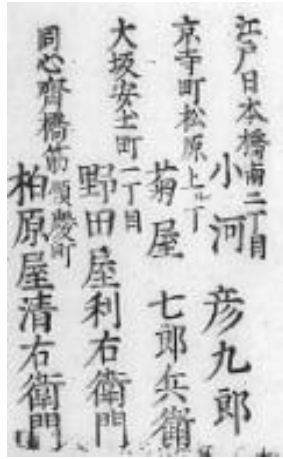 江戸日本橋南二丁目
小河彦九郎
京寺町松原上ル丁
菊屋七郎兵衛
大坂安土町一丁目
野田屋利右衛門
同心齊橋筋順慶町
柏原屋清右衛門